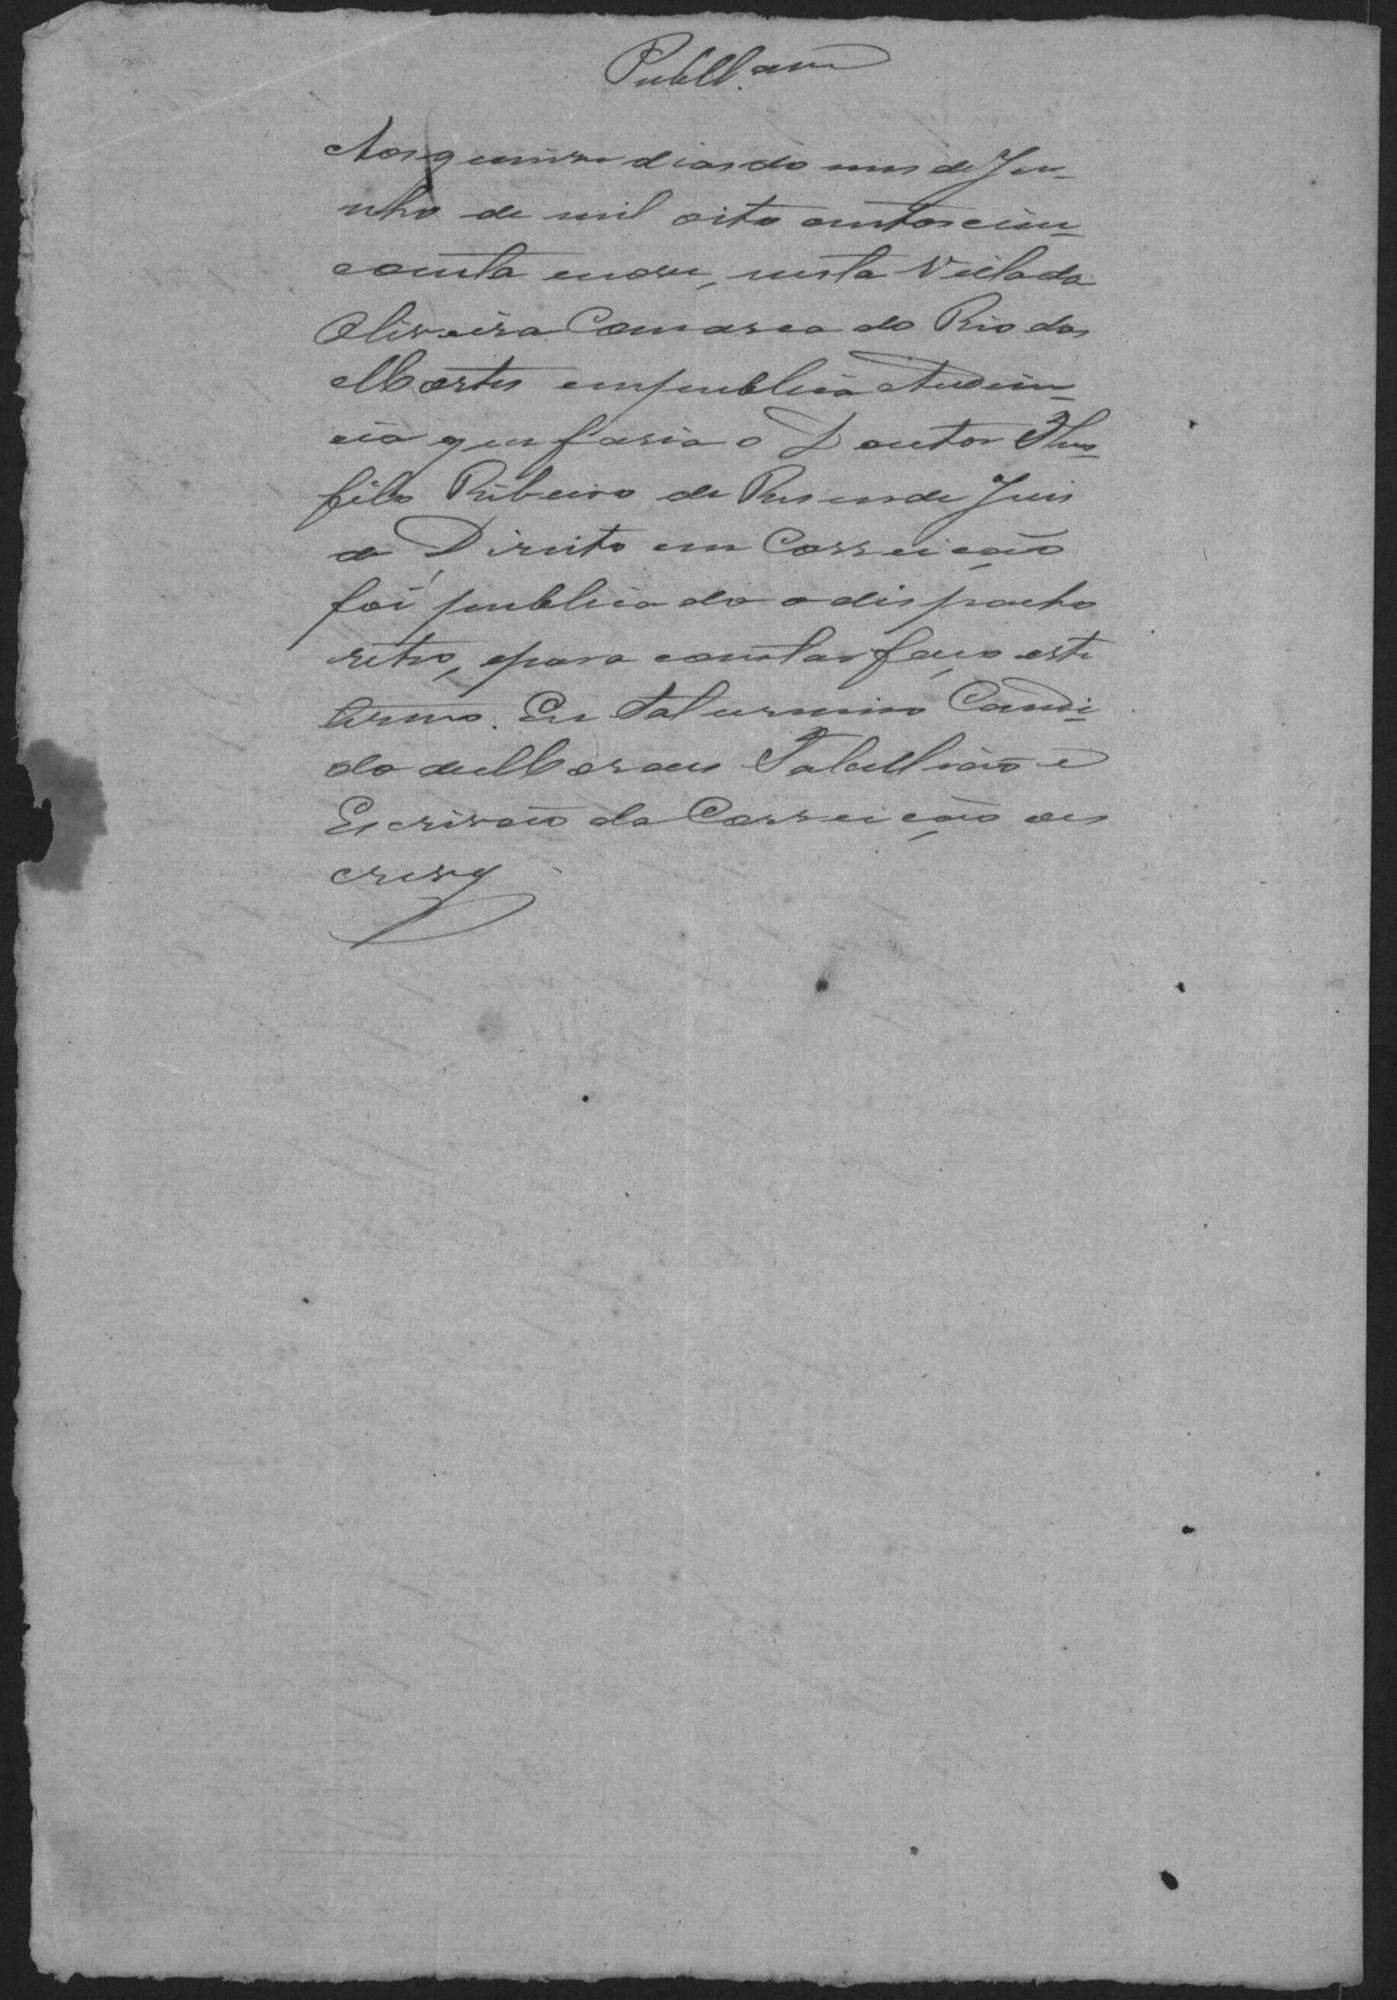 Publl.am
Aos quinse dias do mes de Ju-
nho de mil oito centos cin-
coenta enove, nesta Villa da
Oliveira Comarca do Rio das
Mortes em publica Audien-
cia que fasia o Doutor Theo-
filo Ribeiro de Resende Juis
de Direito em Correição
foi publicado o dispacho
retro, epara constar faço este
termo. Eu Saturnino Candi-
do de Moraes Tabellião e
Escrivão da Correição oes
crevy